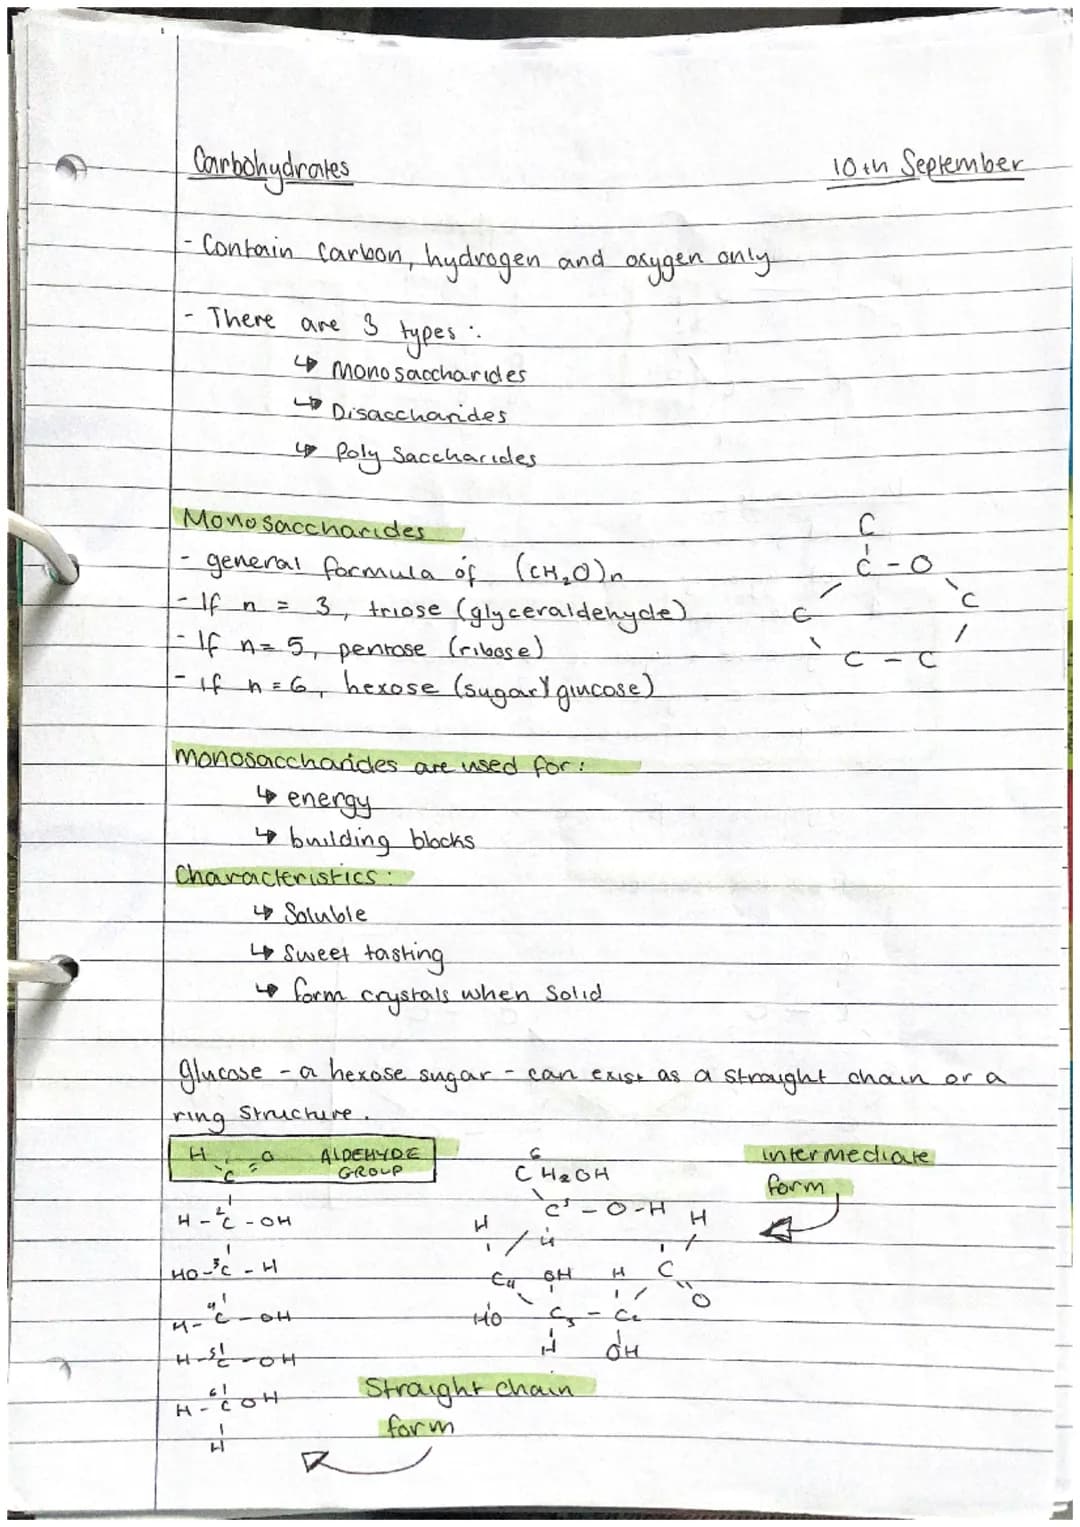 Carbohydrates 10th September
- Contain carbon, hydrogen and oxygen only
- There are 3 types :
↳ Monosaccharides
↳ Disaccharides
↳ Poly Saccharides
Monosaccharides
- general formula of (CH₂O)n
- If n = 3, triose (glyceraldehyde)
- If n = 5, pentose (ribose)
- if n = 6, hexose (sugar) glucose)
C
C - O
C C
C - C
Monosaccharides are used for :
↳ energy
↳ building blocks
Characteristics :
↳ Soluble
↳ Sweet tasting
↳ form crystals when Solid
Glucose - a hexose sugar - can exist as a straight chain or a
ring structure.
H O ALDEHYDE
C GROUP
H - ²C - OH
HO - ³C - H
H - ⁴C - OH
H - ⁵C - OH
H - ⁶C OH
H
6
CH₂OH
C⁵ - O - H H
H H
C₄ OH H C
HO C₃ - C₂ O
H OH
intermediate
form
Straight chain
form